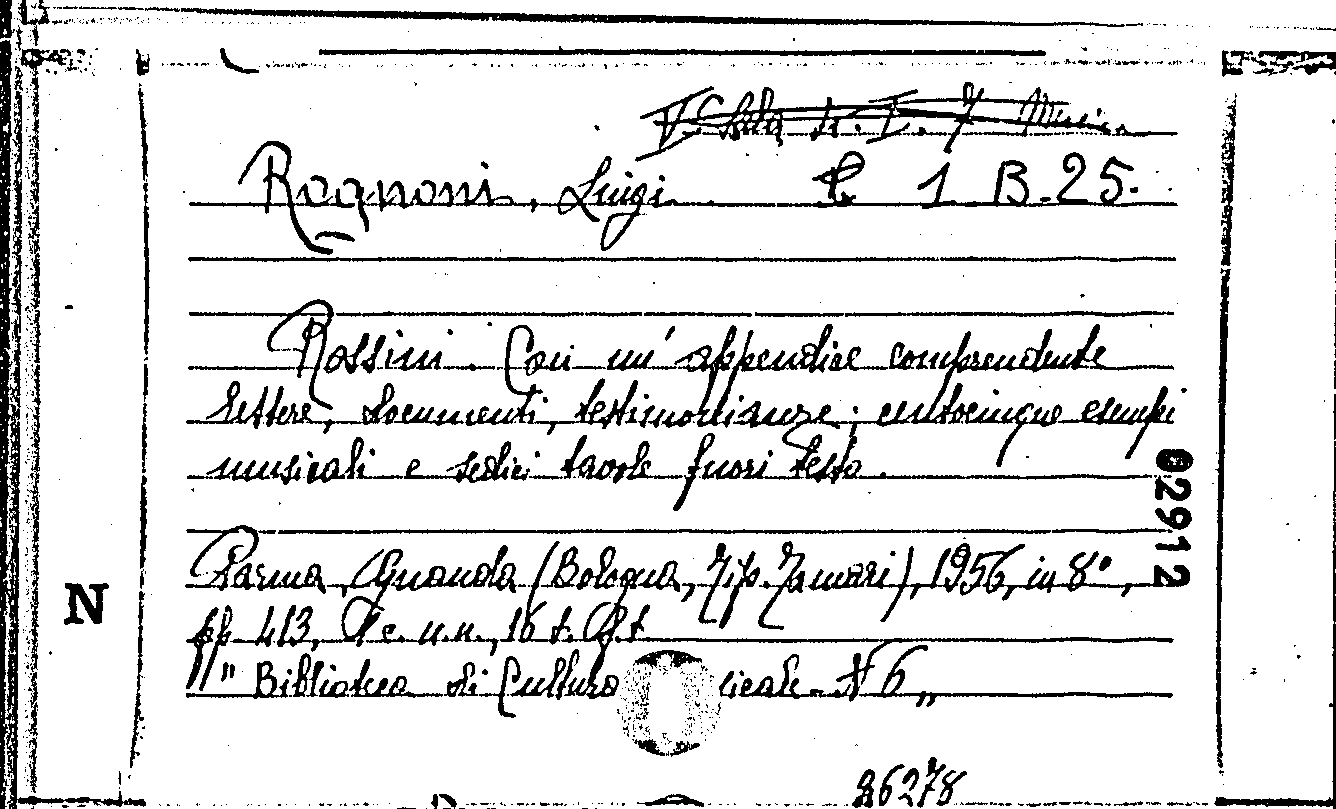 V. Sala L. I. 7 Music.
Rognoni, Luigi. C 1 B.25.
Rossini. Con un' appendice comprendente
lettere, documenti, testimonianze; centocinque esempi
musicali e sedici tavole fuori testo.
02912
Parma, Guanda (Bologna, Tip. Zamori), 1956, in 8°,
N
pp 413, 1 c. n.n., 16 t. f.t
"Biblioteca di Cultura sicale - N 6"
26278